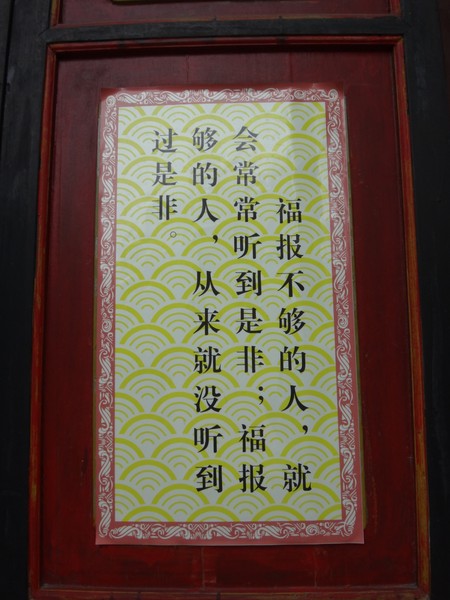 福报不够的人，就
会常常听到是非；福报
够的人，从来就没听到
过是非。